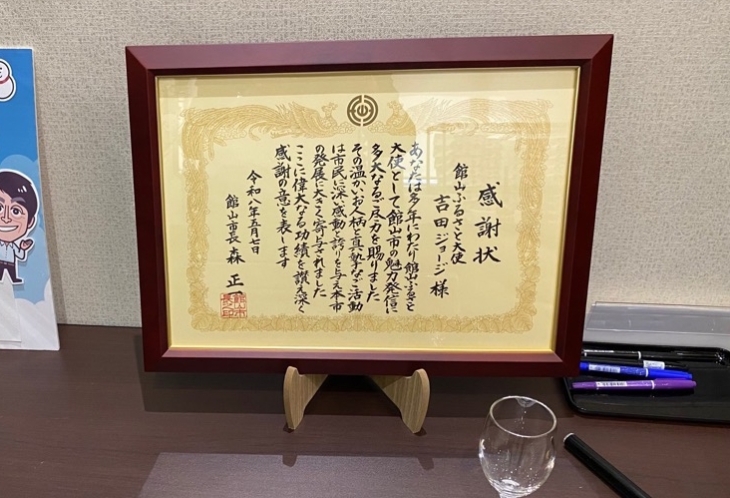 感謝状
館山ふるさと大使
吉田ジョージ 様
あなたは多年にわたり館山ふるさと
大使として館山市の魅力発信に
多大なるご尽力を賜りました
その温かいお人柄と真摯なご活動
は市民に深い感動と誇りを与え本市
の発展に大きく寄与されました
ここに偉大なる功績を讃え深く
感謝の意を表します
令和八年五月七日
館山市長 森 正一
館山市長之印